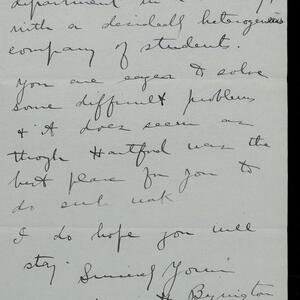 department in a
with a decidedly heterogeneous
company of students.
You are eager to solve
some difficult problems
& it does seem as
though Hartford was the
best place for you to
do such work
I do hope you will
stay.
Sincerely Yours
H. Byington